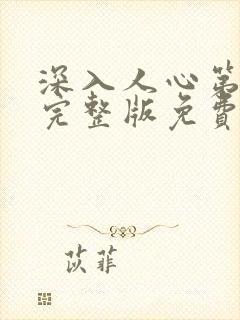 深入人心第
完整版免费
苡菲